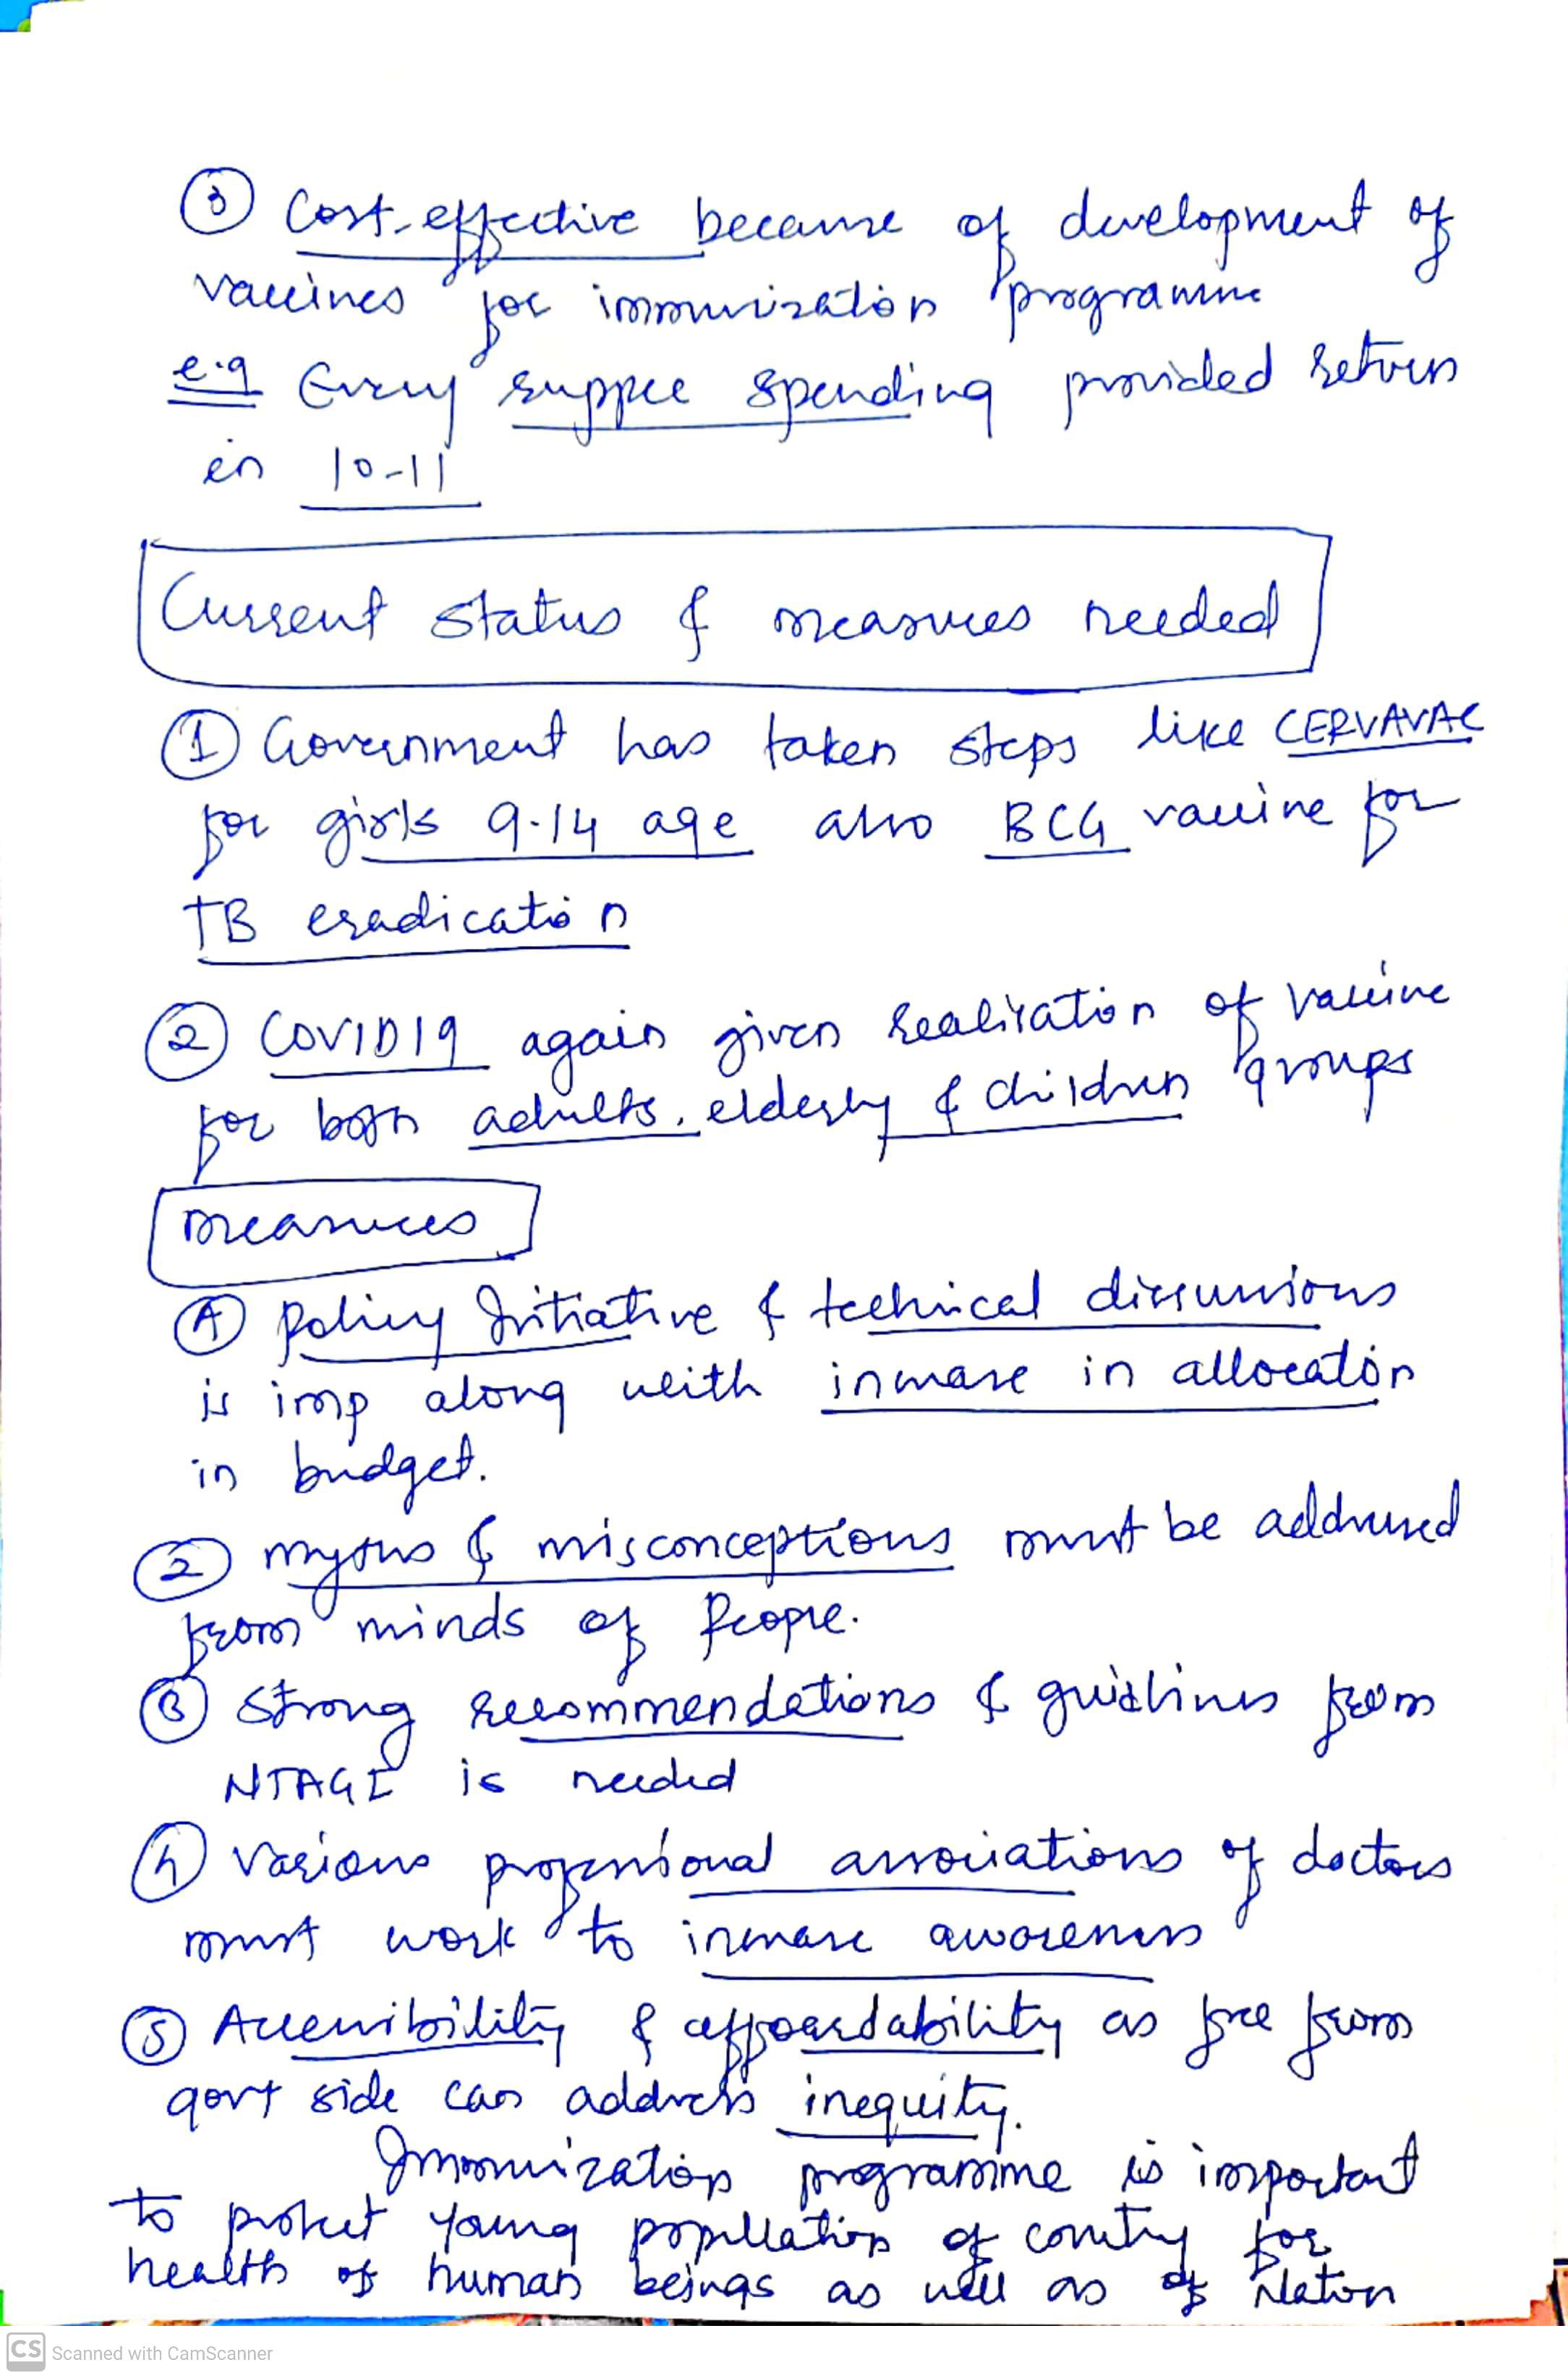 ③ Cost-effective because of development of
vaccines for immunization programme
e.g Every ruppee spending provided return
in 10-11
Current status & measures needed
① Government has taken steps like CERVAVAC
for girls 9-14 age also BCG vaccine for
TB eradication
② COVID19 again given realization of vaccine
for both adults, elderly & children groups
Measures
Ⓐ Policy Initiative & technical discussions
is imp along with increase in allocation
in budget.
② myths & misconceptions must be addressed
from minds of People.
③ Strong recommendations & guidlines from
NTAGI is needed
④ Various professional associations of doctors
must work to increase awareness
⑤ Accessibility & affoardability as free from
govt side can address inequity.
Immunization programme is important
to protect young popullation of country for
health of human beings as well as of Nation
CS Scanned with CamScanner